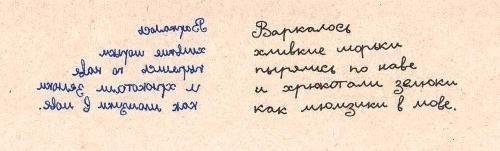 Варкалось
хливкие шорьки
пырялись по наве
и хрюкотали зелюки
как мюмзики в мове.
Варкалось
хливкие шорьки
пырялись по наве
и хрюкотали зелюки
как мюмзики в мове.